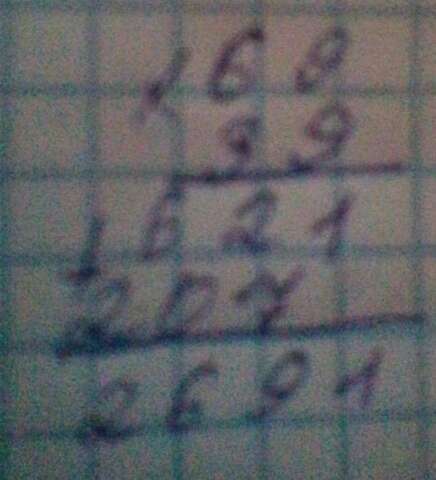 × 69
39
+ 621
207
2691